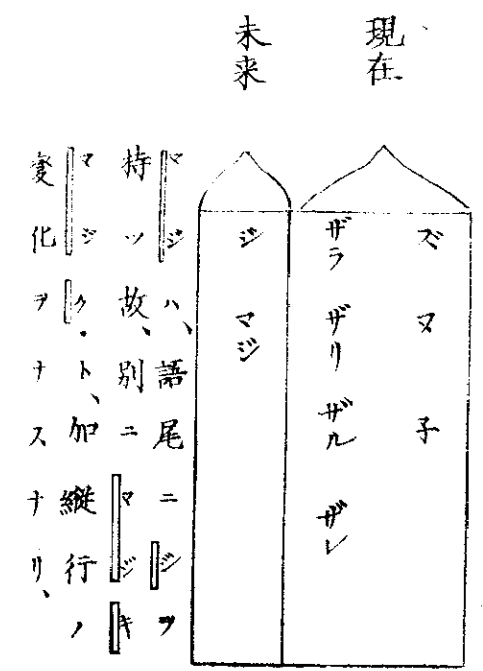 現在
ズ ヌ 子
ザラ ザリ ザル ザレ
未来
ジ マジ
マジハ、語尾ニシヲ
持ツ故、別ニマジキ
マジク・ト、加縦行ノ
変化ヲナスナリ、